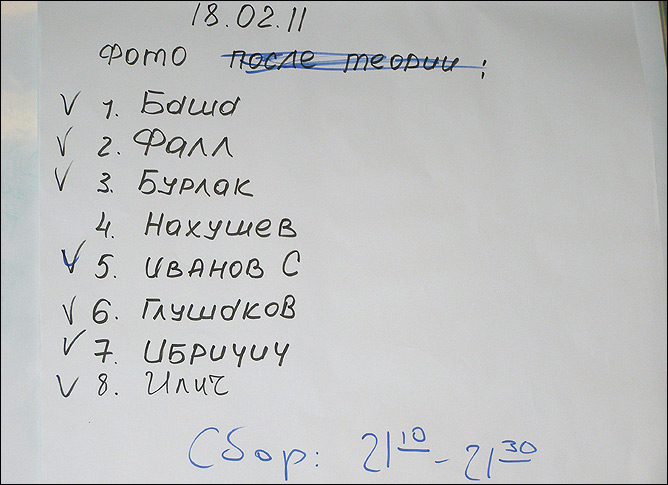 18.02.11
Фото после теории:
V 1. Баша
V 2. Фалл
V 3. Бурлак
4. Нахушев
V 5. Иванов С
V 6. Глушаков
V 7. Ибричич
V 8. Илич
Сбор: 21 10 - 21 30